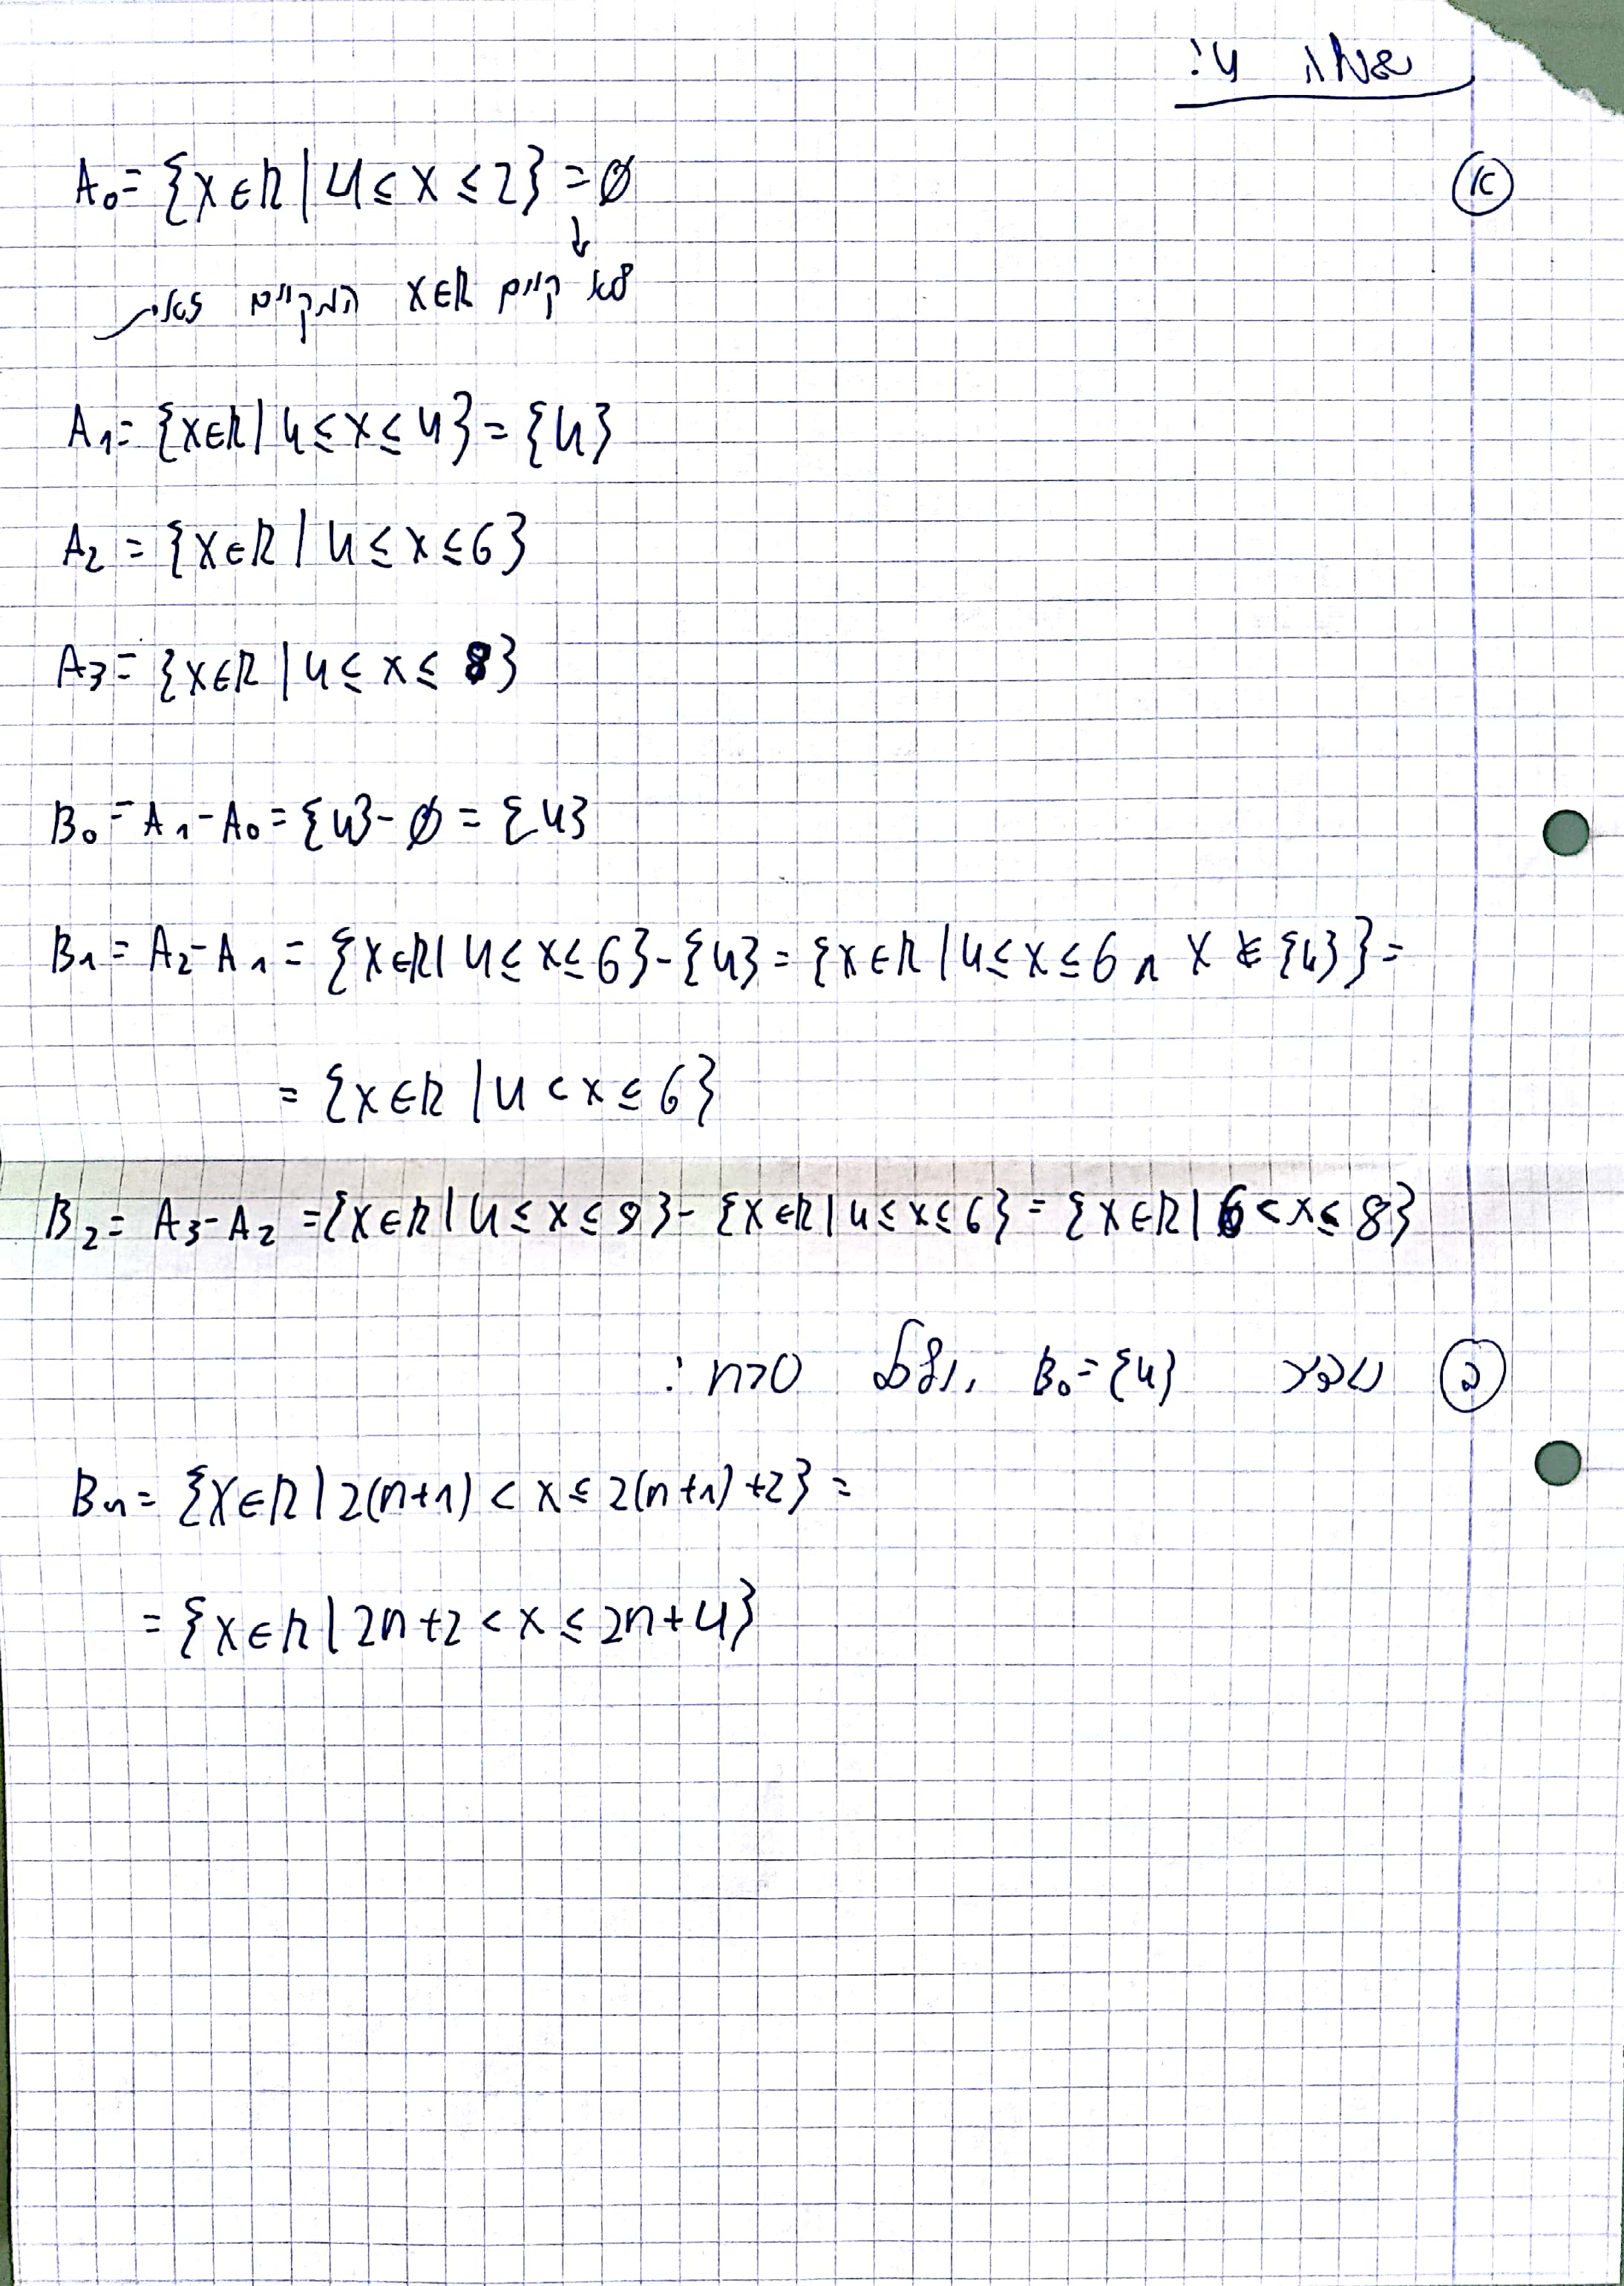 שאלה 4:
א
A₀ = {x∈R | 4 ≤ x ≤ 2} = ∅
↓
לא קיים x∈R המקיים זאת.
A₁ = {x∈R | 4 ≤ x ≤ 4} = {4}
A₂ = {x∈R | 4 ≤ x ≤ 6}
A₃ = {x∈R | 4 ≤ x ≤ 8}
B₀ = A₁ - A₀ = {4} - ∅ = {4}
B₁ = A₂ - A₁ = {x∈R | 4 ≤ x ≤ 6} - {4} = {x∈R | 4 ≤ x ≤ 6 ∧ x ∉ {4}} =
= {x∈R | 4 < x ≤ 6}
B₂ = A₃ - A₂ = {x∈R | 4 ≤ x ≤ 8} - {x∈R | 4 ≤ x ≤ 6} = {x∈R | 6 < x ≤ 8}
ב B₀ = {4}, ולכל n>0 :
Bₙ = {x∈R | 2(n+1) < x ≤ 2(n+1)+2} =
= {x∈R | 2n+2 < x ≤ 2n+4}